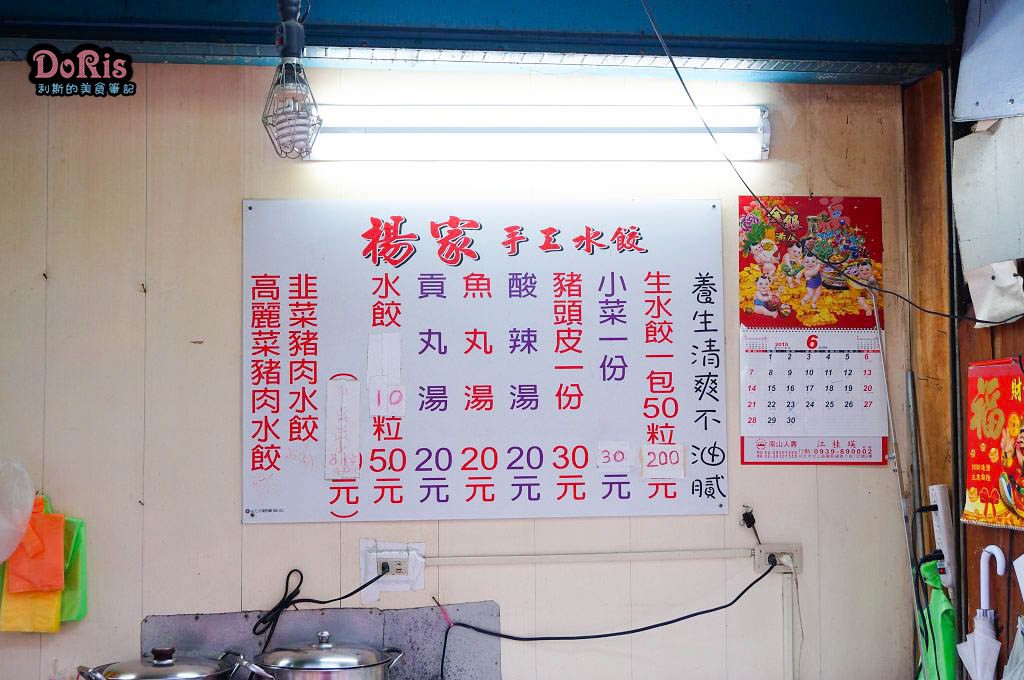 DoRis
利斯的美食筆記
楊家 手工水餃
養生清爽不油膩
生水餃一包50粒200元
小菜一份30元
豬頭皮一份30元
酸辣湯20元
魚丸湯20元
貢丸湯20元
水餃10粒50元
韭菜豬肉水餃
高麗菜豬肉水餃
2015 6
1 2 3 4 5 6
7 8 9 10 11 12 13
14 15 16 17 18 19 20
21 22 23 24 25 26 27
28 29 30
南山人壽 江桂瑛
行動:0939-890002
福
財